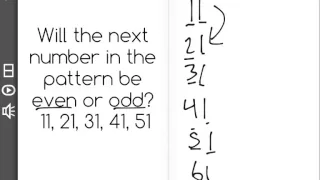 Will the next
number in the
pattern be
even or odd?
11, 21, 31, 41, 51
11
21
31
41
51
61